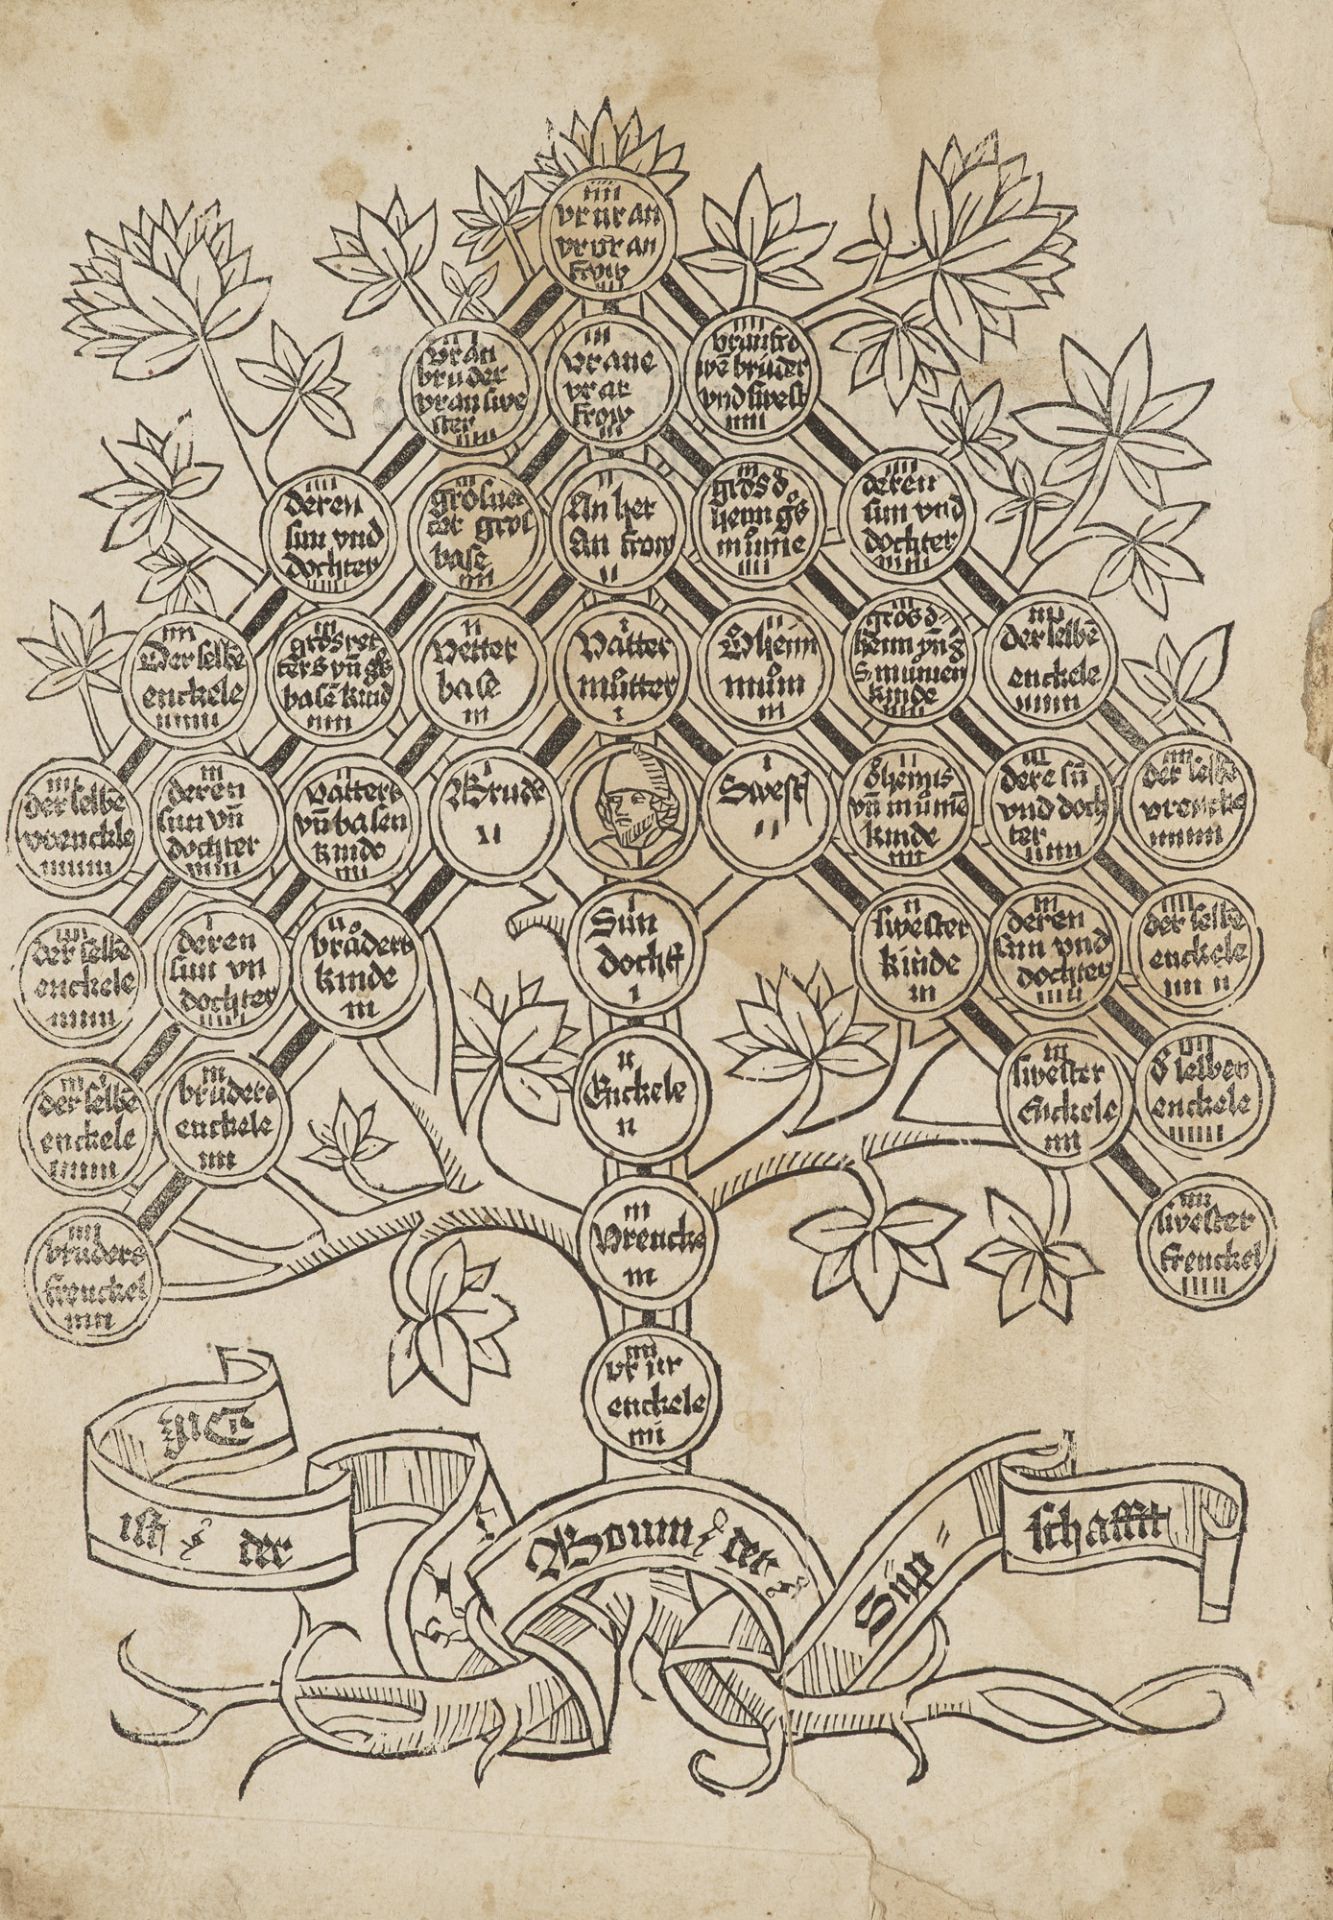 iiii
vr ur an
vr ur an
frow
iii
vran
bruder
vran swe
ster
iiiii
iii
vrane
vrar
frow
iii
iiii
wē bruder
vnd swest
iiiii
iiii
deren
sun vnd
dochter
iiiii
iii
ter gros
base
iiii
ii
An her
An frow
ii
iii
gros ð
můme
iiii
iiii
deren
sun vnd
dochter
iiiii
iiii
Der selbē
enckele
iiiii
iii
basē kind
iiiii
ii
Vetter
base
iii
i
Vatter
můtter
i
ii
Ôheim
mům
iii
iii
gros ð
kinde
iiiii
iiii
der selbē
enckele
iiiiii
iiii
der selbē
vrenckle
iiiiiii
iii
deren
sun vñ
dochter
iiiii
ii
vatters
vñ basen
kinde
iiii
i
Brude
ii
i
Swest
ii
ii
ôheims
vñ můmē
kinde
iiii
iii
dere sū
vnd doch
ter
iiiii
iiii
der selbē
vrenckle
iiiiii
iiii
der selbē
enckele
iiiiii
deren
sun vn
dochter
iiiii
ii
brůders
kinde
iii
i
Sun
docht
i
ii
swester
kinde
iii
iii
deren
sun vnd
dochter
iiiii
iiii
der selbē
enckele
iiii ii
iii
der selbē
enckele
iiiiii
iii
bruders
enckele
iiii
ii
Enckele
ii
iii
swester
Enckele
iiii
iiii
ð selben
enckele
iiiiii
iiii
bruders
frenckel
iiiii
iii
Vrencke
iii
iiii
swester
frenckel
iiiii
iiii
vr ur
enckele
iiii
Diß
ist der
Boum der
Sip
schafft